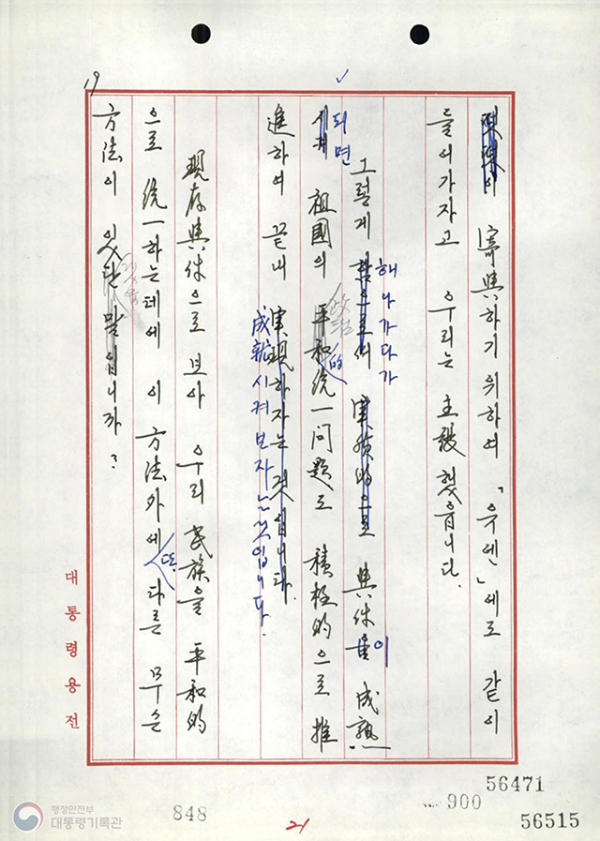 19
이 寄與하기 위하여 「유엔」에로 같이
들어가자고 우리는 主張했읍니다.
해 나가다가
그렇게 함으로써 実質的으로 與件을이 成熟
되면
시켜 祖國의 平和的統一 問題도 積極的으로 推
進하여 끝내 実現하자는 것입니다.
成就시켜 보자는 것입니다.
現存與件으로 보아 우리 民族을 平和的
으로 統一하는데에 이 方法外에 또 다른 무슨
方法이 있단 말입니까?
대통령용전
56471
900
848
21
56515
행정안전부
대통령기록관